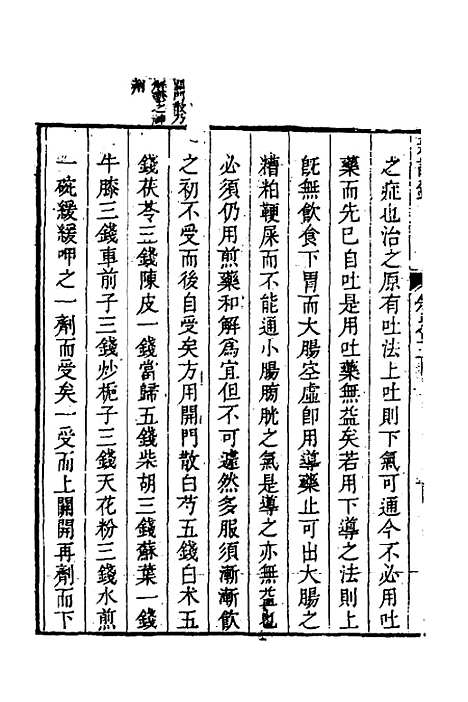 之症也治之原有吐法上吐則下氣可通今不必用吐
藥而先已自吐是用吐藥無益矣若用下導之法則上
旣無飮食下胃而大腸空虛卽用導藥止可出大腸之
糟粕鞕屎而不能通小腸膀胱之氣是導之亦無益也
必須仍用煎藥和解爲宜但不可遽然多服須漸漸飮
之初不受而後自受矣方用開門散白芍五錢白术五
錢茯苓三錢陳皮一錢當歸五錢柴胡三錢蘇葉一錢
牛膝三錢車前子三錢炒梔子三錢天花粉三錢水煎
一碗緩緩呷之一劑而受矣一受而上關開再劑而下